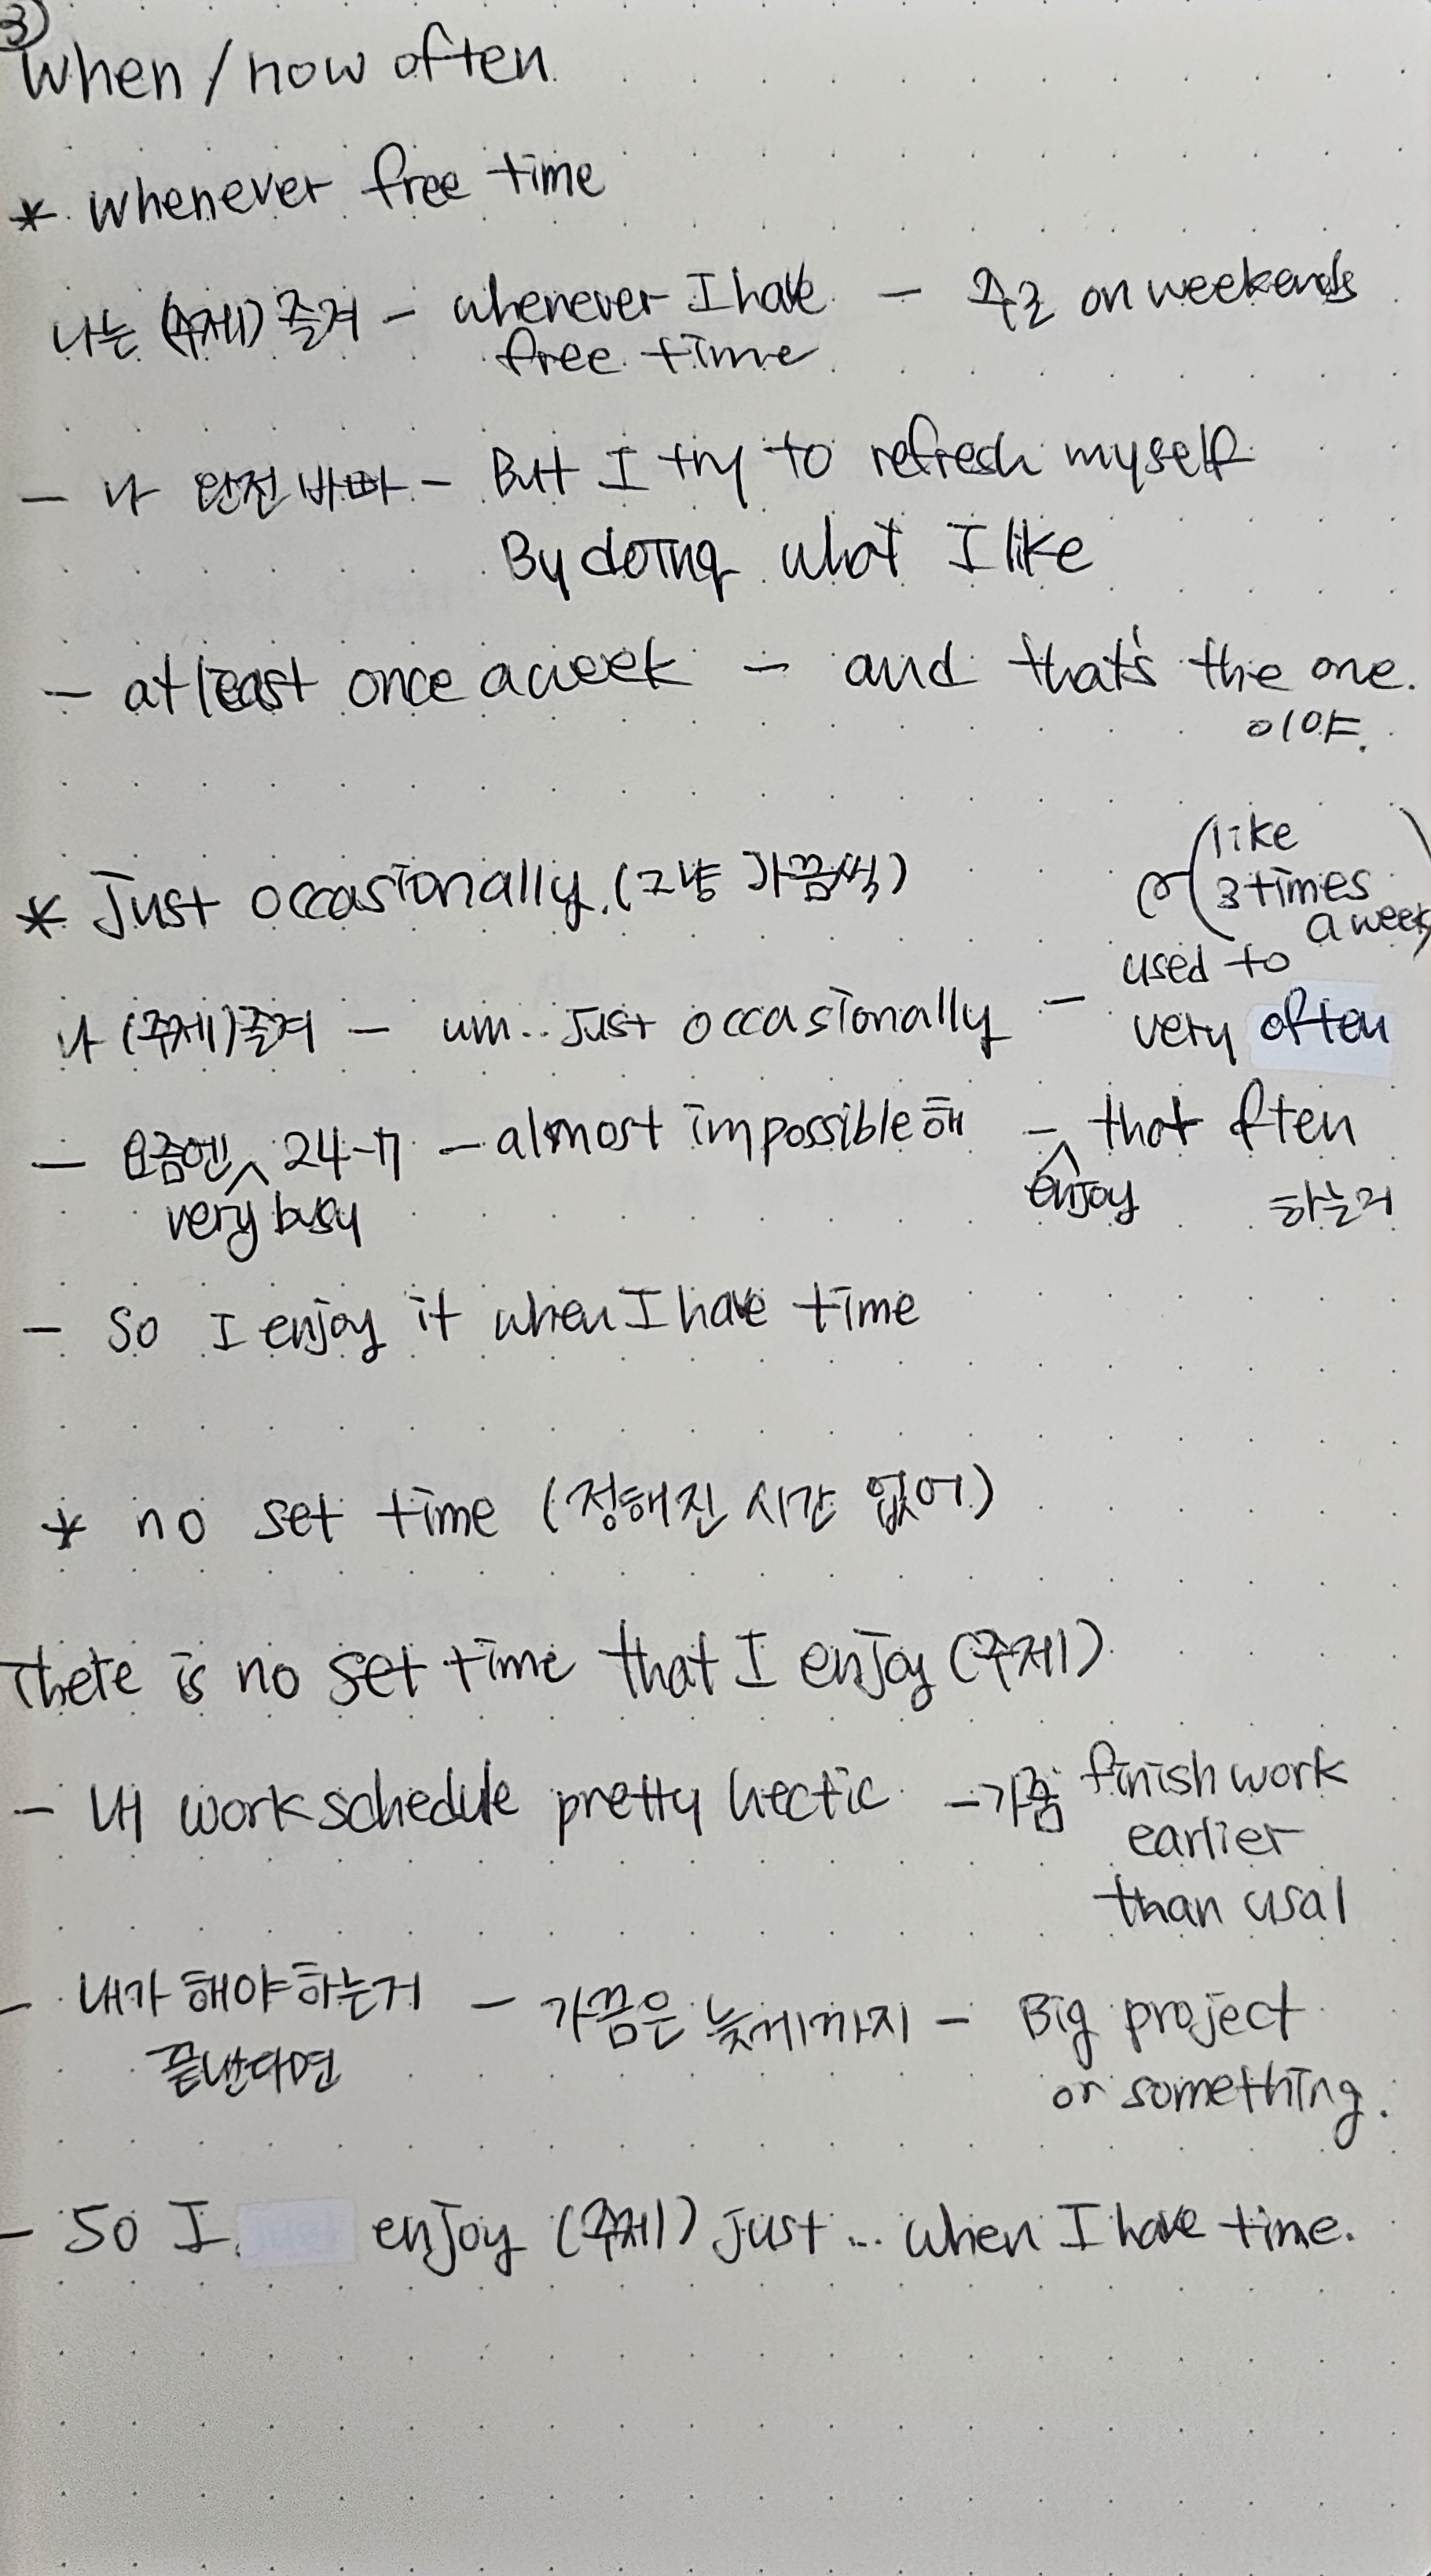 ③
When / how often
* whenever free time
나는 (주제) 즐겨 - whenever I have - 주로 on weekends
free time
- 나 완전 바빠 - But I try to refresh myself
By doing what I like
- at least once a week - and that's the one.
이야.
* Just occasionally. (그냥 가끔씩)
or (like
3 times
a week)
used to
나 (주제) 즐겨 - um.. Just occasionally - very often
- 요즘엔 ^ 24-7 - almost impossible해 - ^ that ften
very busy enjoy 하는거
- So I enjoy it when I have time
* no set time (정해진 시간 없어)
There is no set time that I enjoy (주제)
- 내 work schedule pretty hectic - 가끔 finish work
earlier
than usal
- 내가 해야하는거 - 가끔은 늦게까지 - Big project
끝낸다면 or something.
- So I enjoy (주제) Just ... when I have time.